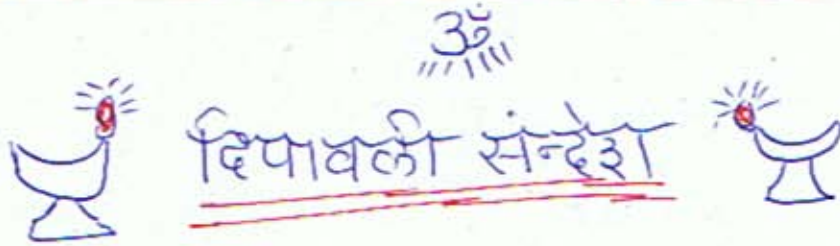 ॐ
दिपावली संन्देश